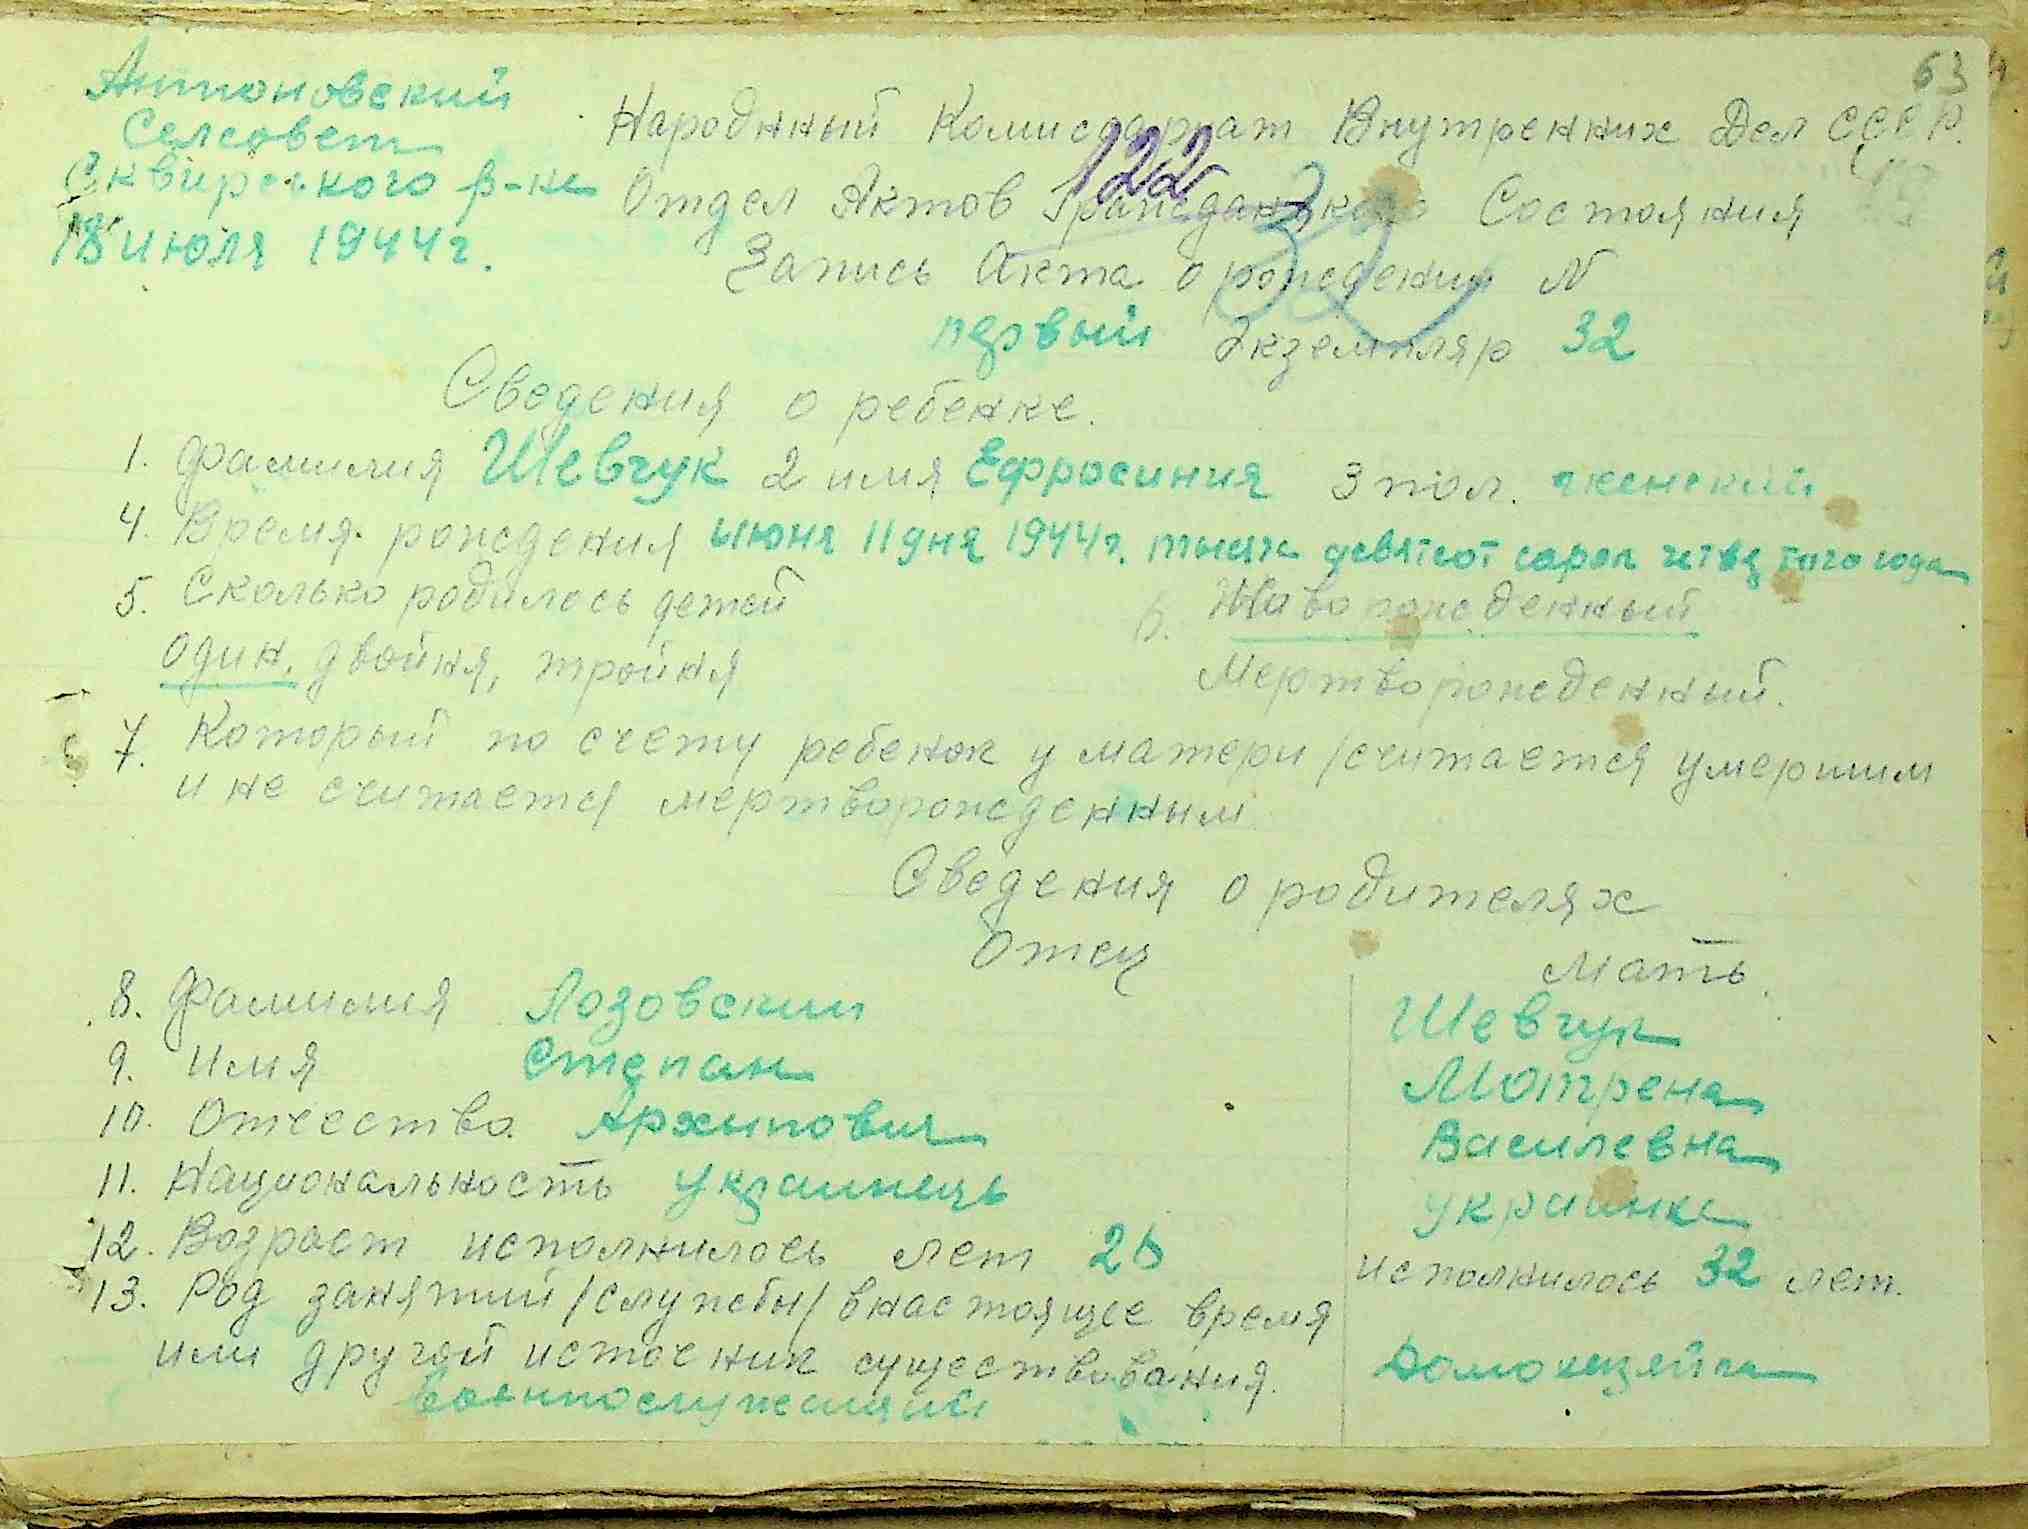 63
Антоновский
Селсовет
Сквирського р-на
18 июля 1944г.
Народнный Комиссариат Внутренних Дел СССР.
122
Отдел Актов Гражданского Состояния
32
Запись Акта о рождении N
первый Экземпляр 32
Сведения о ребенке.
1. Фамилия Шевчук 2 имя Ефросиния 3 пол. женский
4. Время рождения июня 11 дня 1944г. тысяч девятсот сорок четвертого года
5. Сколько родилось детей 6. Живорожденный
один, двойня, тройня Мертворожденный.
7. Который по счету ребенок у матери /считается умершим
и не считается мертворожденным
Сведения о родителях
Отец Мать.
8. Фамилия Лозовский Шевчук
9. имя Степан Мотрена
10. Отчество Архипович Василевна
11. Национальность украинець украинка
12. Возраст исполнилось лет 26 исполнилось 32 лет.
13. Род занятий /службы/ внастоящее время
или другой источник существования. Домохозяйка
Военнослужащий